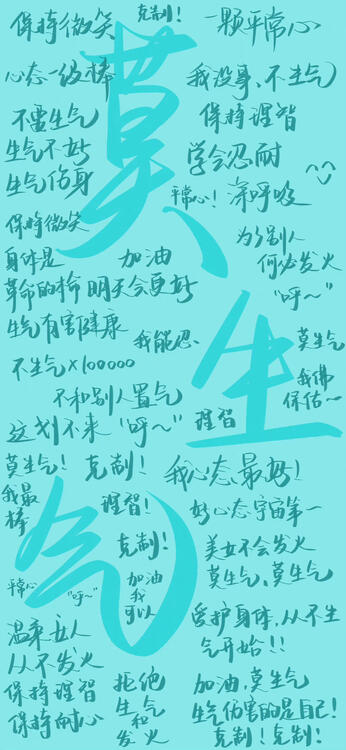 保持微笑
克制!
一颗平常心
心态一级棒
我没事、不生气
不要生气
生气不好
生气伤身
保持理智
学会忍耐
平常心!
深呼吸
保持微笑
身体是
革命的本命
加油
明天会更好
为了别人
何必发火
“呼~”
生气有害健康
我能忍、
莫生气
不生气×100000
我佛
保佑~
不和别人置气
这划不来“呼~”
理智
莫生气!
克制!
我心态最好!
我最
棒
理智!
好心态宇宙第一
克制!
美女不会发火
莫生气、莫生气
平常心
“呼~”
加油
我
可以
爱护身体,从不生
气开始!!
温柔女人
从不发火
保持理智
保持耐心
拒绝
生气
和
发火
加油,莫生气
生气伤害的是自己!
克制!克制!
莫
生
气